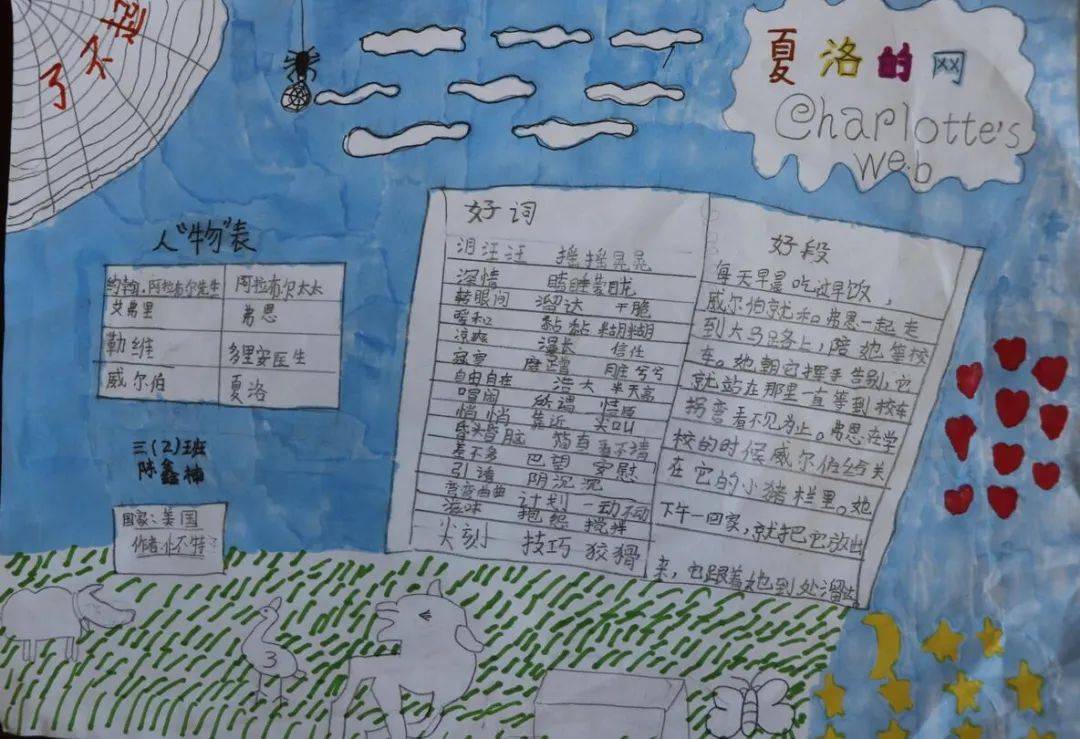 了不起
夏洛的网
Charlotte's
Web
人"物"表
约翰.阿拉布尔先生 阿拉布尔太太
艾弗里 弗恩
勒维 多里安医生
威尔伯 夏洛
三(2)班
陈鑫柿
国家:美国
作者:怀特
好词
泪汪汪 摇摇晃晃
深情 瞌睡蒙胧
转眼间 溜达 干脆
暖和 黏黏糊糊
凉爽 漫长 信任
寂寞 磨蹭 脏兮兮
自由自在 浩大 半天高
喧闹 所谓
悄悄 靠近 尖叫
差不多 巴望 安慰
引诱 阴沉沉
弯弯曲曲 计划 一动不动
滋味 抱怨 搅拌
尖刻 技巧 狡猾
好段
每天早晨吃过早饭,
威尔伯就和弗恩一起走
到大马路上,陪她等校
车。她朝它挥手告别,它
就站在那里一直等到校车
拐弯看不见为止。弗恩在学
校的时候威尔伯给关
在它的小猪栏里。她
下午一回家,就把它放出
来,它跟着她到处溜达
3